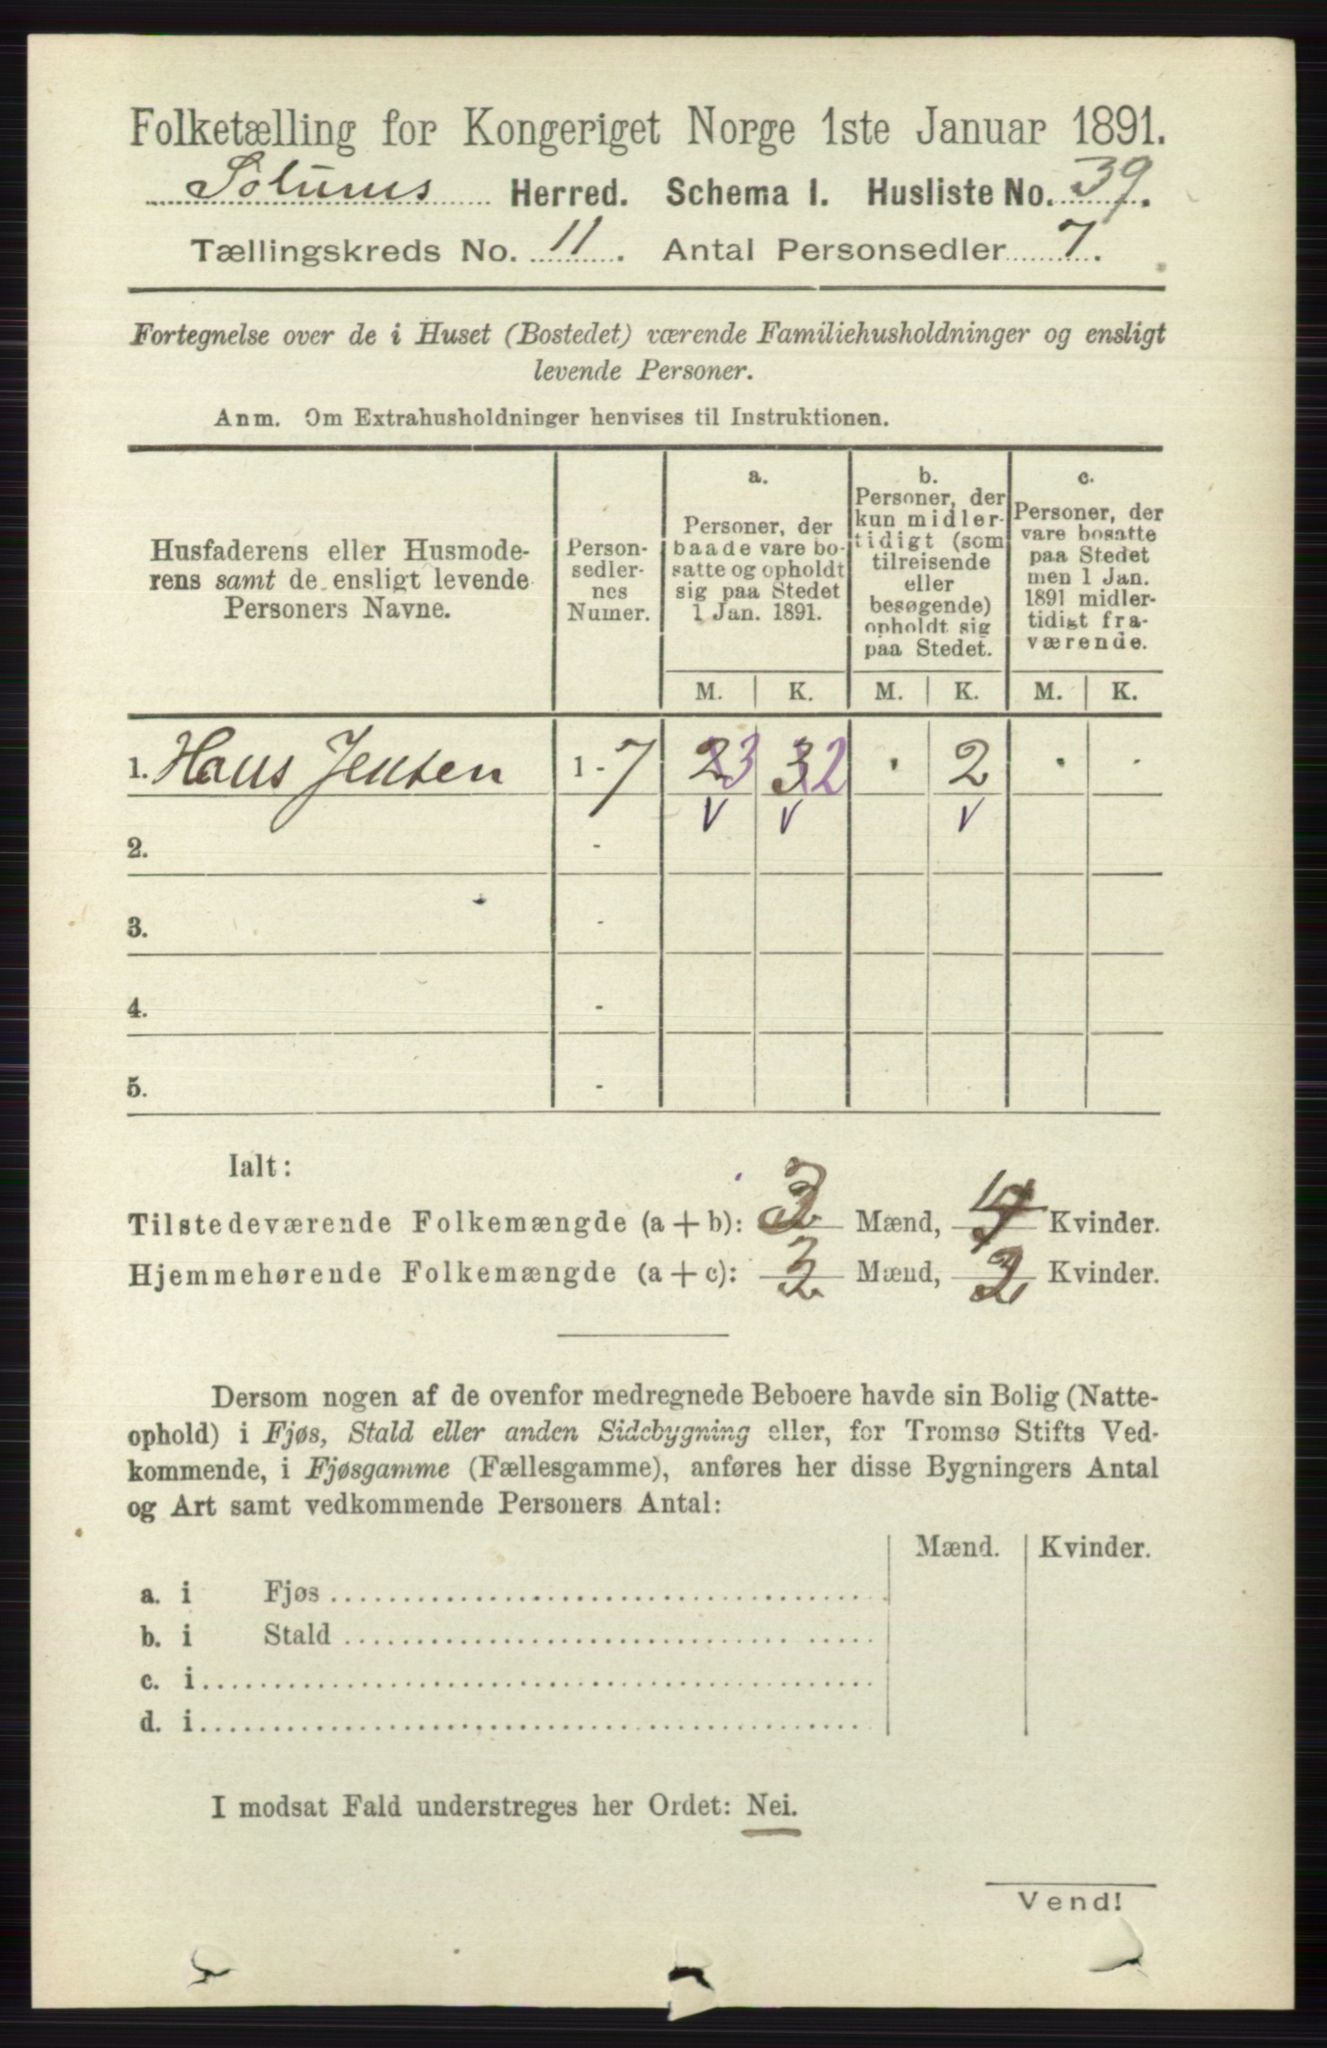 Folketælling for Kongeriget Norge 1ste Januar 1891.
Solums Herred. Schema I. Husliste No. 39.
Tællingskreds No. 11. Antal Personsedler 7.
Fortegnelse over de i Huset (Bostedet) værende Familiehusholdninger og ensligt
levende Personer.
Anm. Om Extrahusholdninger henvises til Instruktionen.
Husfaderens eller Husmode-
rens samt de ensligt levende
Personers Navne.
Person-
sedler-
nes
Numer.
a.
Personer, der
baade vare bo-
satte og opholdt
sig paa Stedet
1 Jan. 1891.
b.
Personer, der
kun midler-
tidigt (som
tilreisende
eller
besøgende)
opholdt sig
paa Stedet.
c.
Personer, der
vare bosatte
paa Stedet
men 1 Jan.
1891 midler-
tidigt fra-
værende.
M. K. M. K. M. K.
1. Hans Jensen 1 - 7 23 32 · 2 · ·
V V V
2. -
3. -
4. -
5. -
Ialt:
Tilstedeværende Folkemængde (a + b): 3 Mænd, 4 Kvinder.
Hjemmehørende Folkemængde (a + c): 3 Mænd, 2 Kvinder.
Dersom nogen af de ovenfor medregnede Beboere havde sin Bolig (Natte-
ophold) i Fjøs, Stald eller anden Sidebygning eller, for Tromsø Stifts Ved-
kommende, i Fjøsgamme (Fællesgamme), anføres her disse Bygningers Antal
og Art samt vedkommende Personers Antal:
Mænd. Kvinder.
a. i Fjøs
b. i Stald
c. i
d. i
I modsat Fald understreges her Ordet: Nei.
Vend!